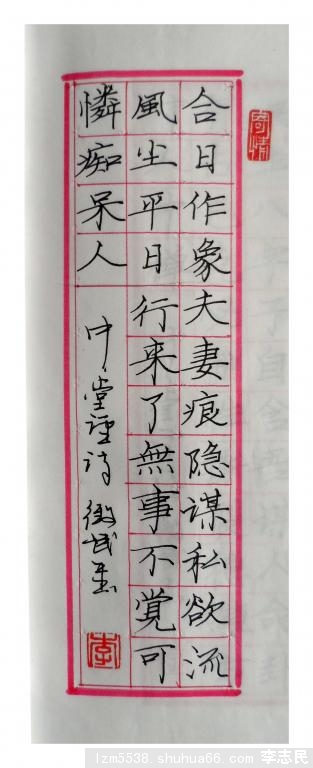 寄情
合日作象夫妻痕隐谋私欲流
風尘平日行来了無事不覚可
憐痴呆人
中堂
诗
李
lzm5538.shuhua66.com 李志民